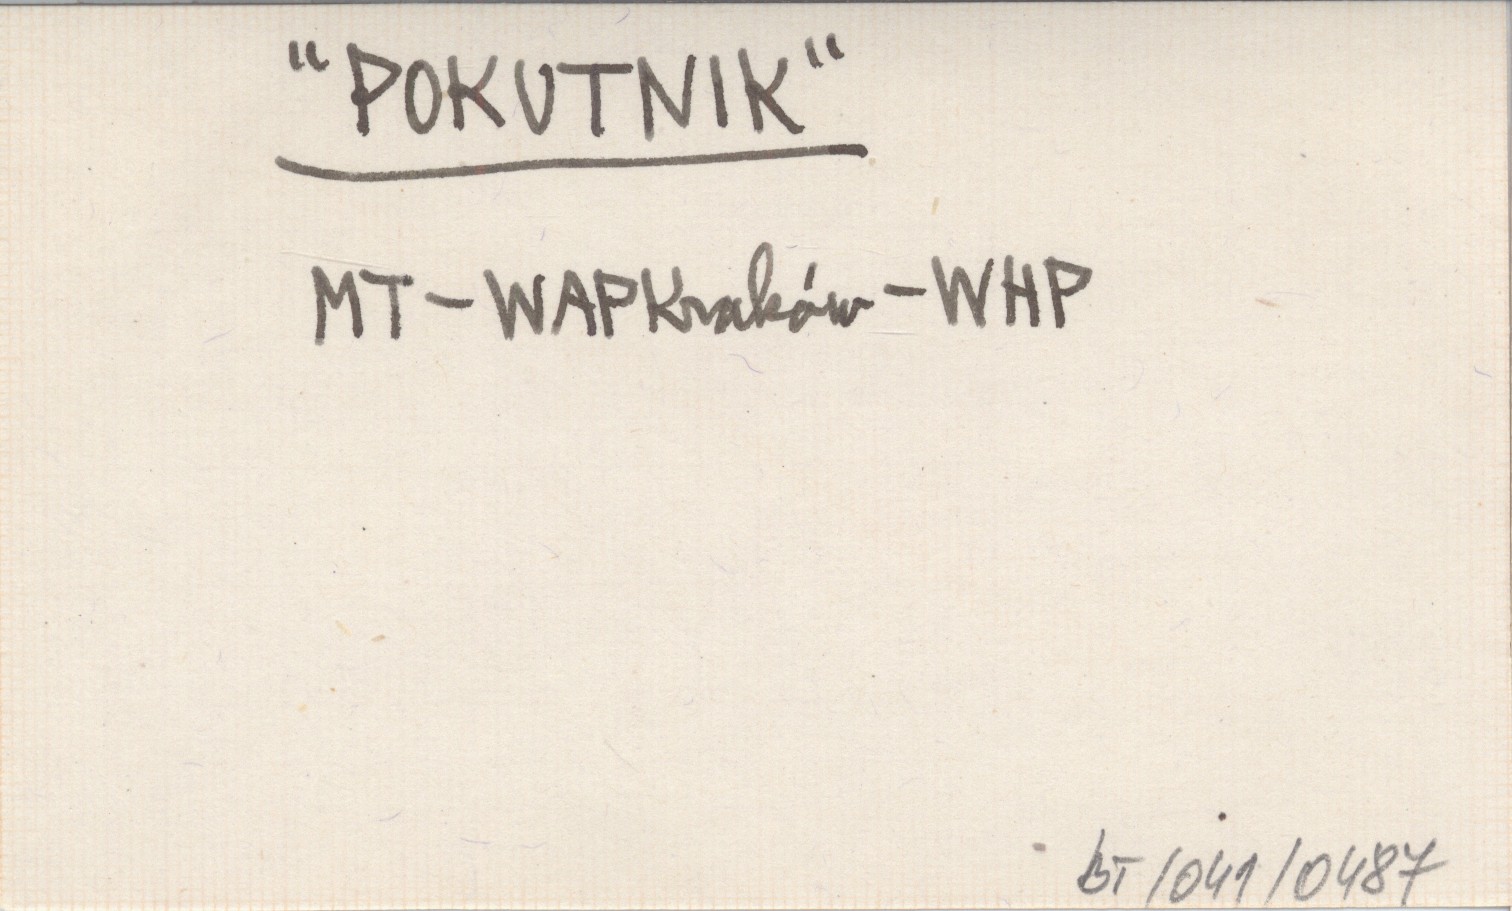 "POKUTNIK"
MT-WAPKraków-WHP
BT/041/0487